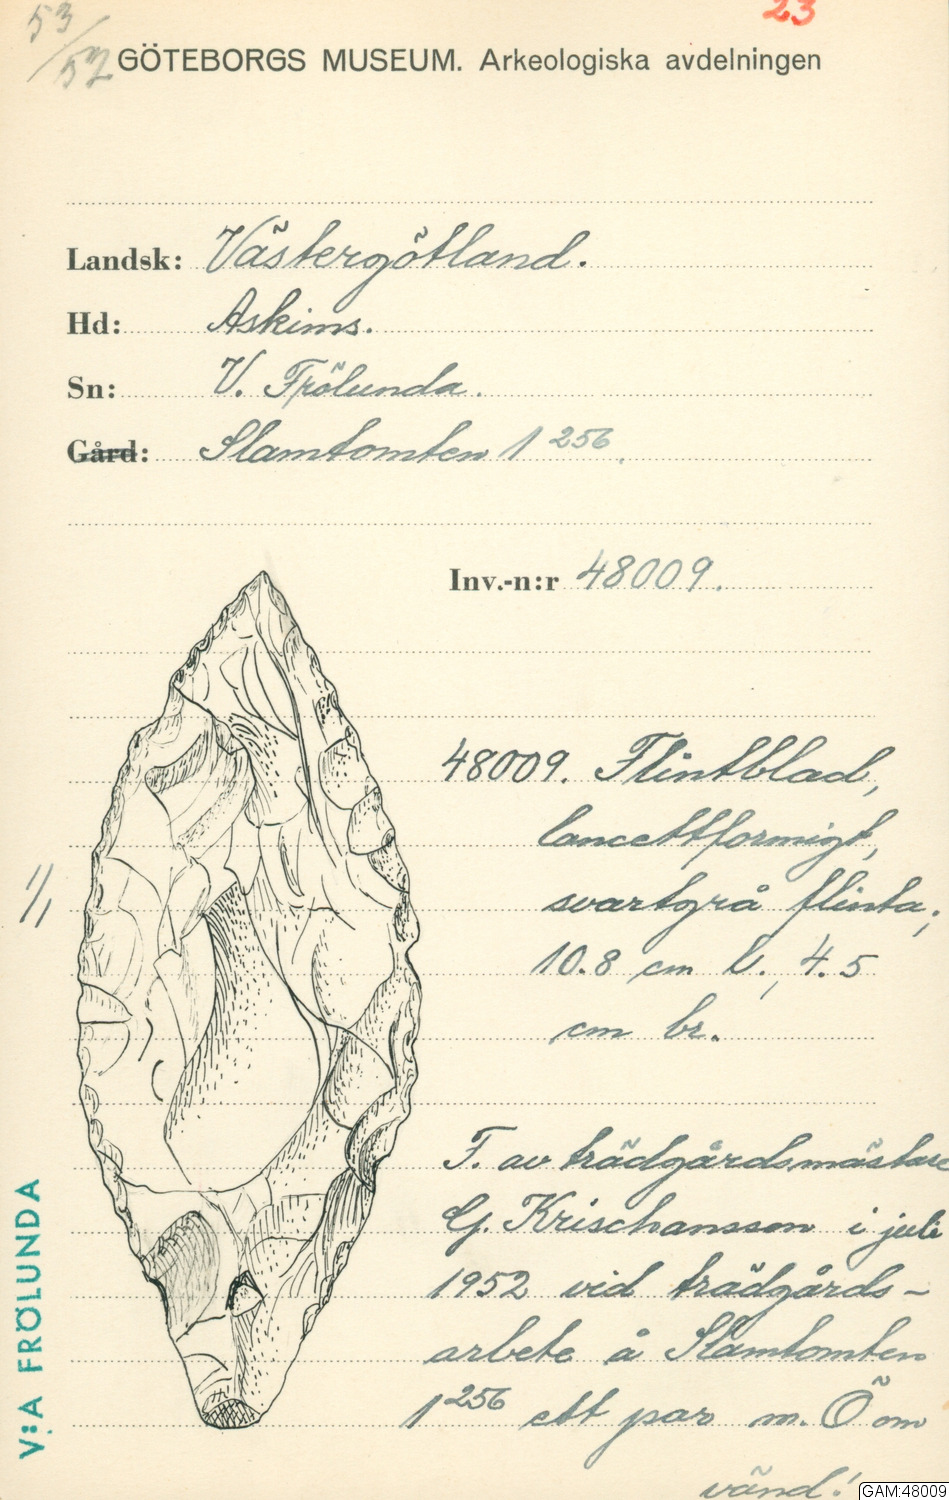 53/52
23
GÖTEBORGS MUSEUM. Arkeologiska avdelningen
Landsk: Västergötland.
Hd: Askims.
Sn: V. Frölunda.
Gård: Slamtomten 1²⁵⁶.
Inv.-n:r 48009.
48009. Flintblad,
lancettformigt,
svartgrå flinta;
10.8 cm l., 4.5
cm br.
1/1
F. av trädgårdsmästare
G. Krischansson i juli
1952 vid trädgårds-
arbete å Slamtomten
1²⁵⁶ ett par m. Ö om
vänd!
V:A FRÖLUNDA
GAM:48009